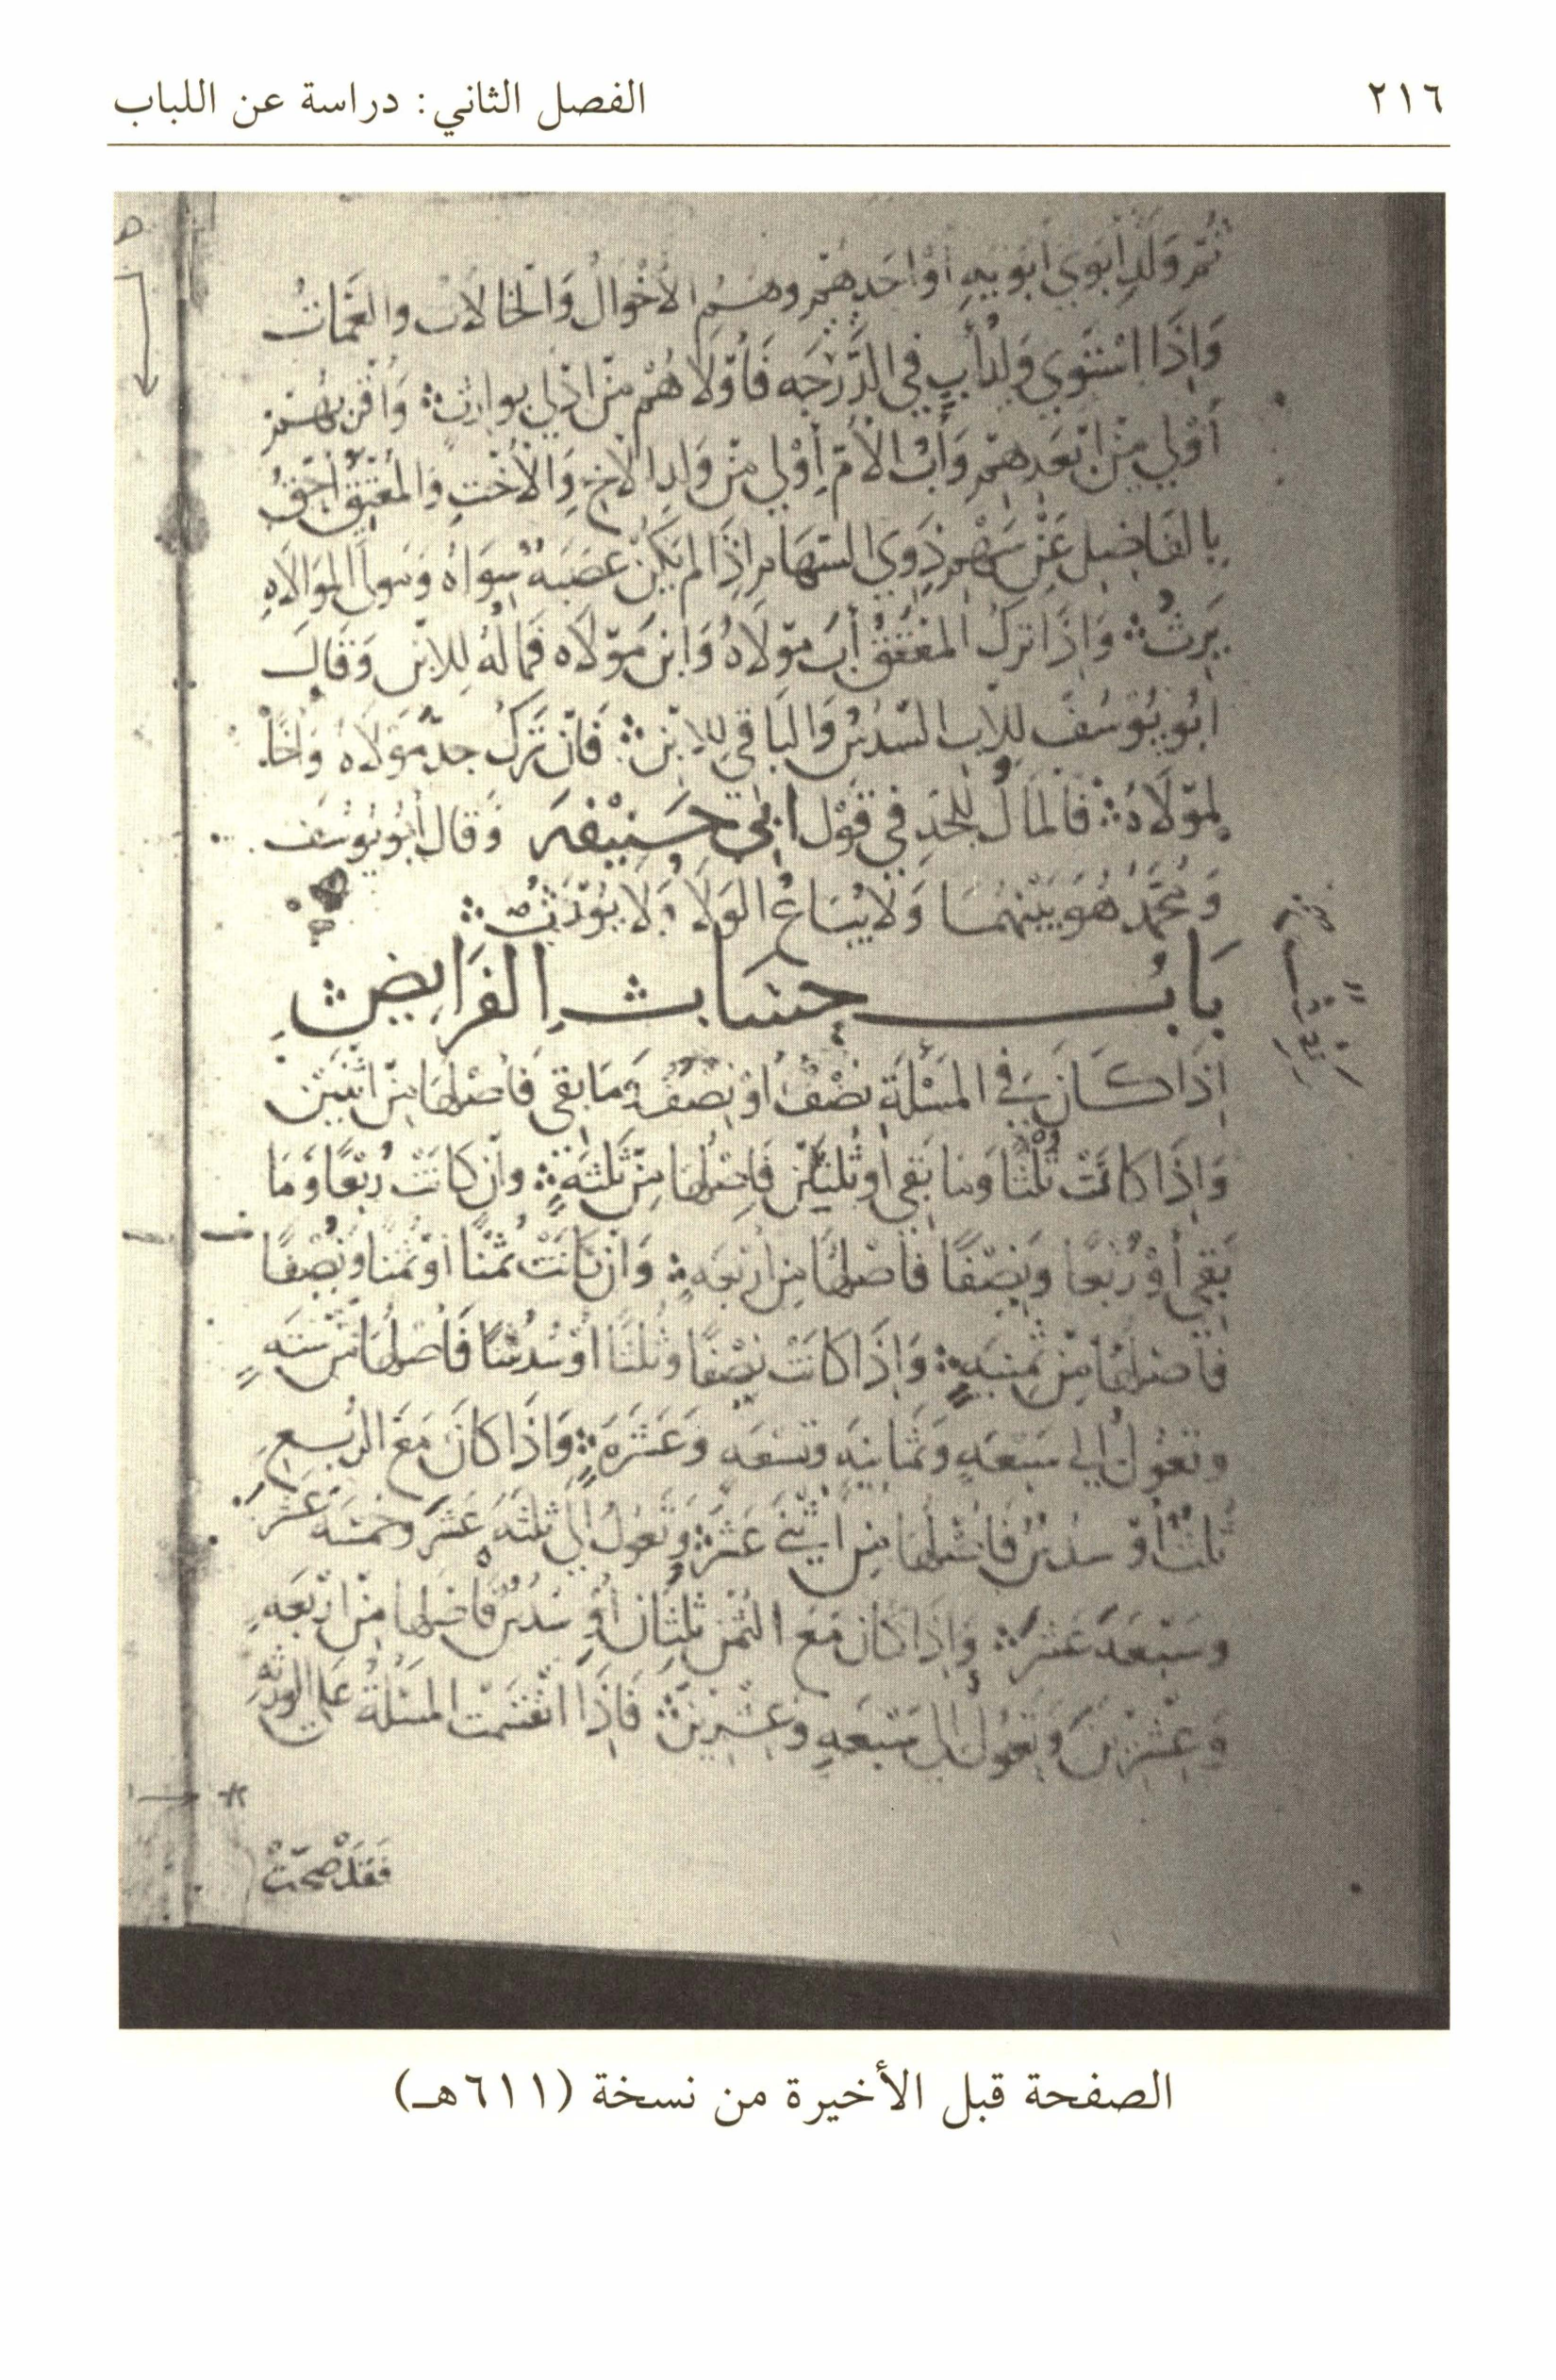 ٢١٦
الفصل الثاني: دراسة عن اللباب
ثم ولد ابوي ابويه أو احدهم وهم الأخوال والخالات والعمات
واذا استوى ولد أب في الدرجه فأولاهم من ادلى بوارث وأقربهم
أولى من ابعدهم وأب الأم أولى من ولد الاخ والأخت والمعتق أحق
بالفاضل عن سهم ذوي السهام اذا لم يكن عصبه سواه ومولى الموالاه
يرث واذا ترك المعتق أب مولاه وابن مولاه فماله للابن وقال
ابو يوسف للأب السدس والباقي للابن فان ترك جد مولاه وأخا
لمولاه فالمال للجد في قول ابي حنيفه وقال أبو يوسف
ومحمد هو بينهما ولا يباع الولا ولا يورث
باب حساب الفرايض
اذا كان في المسئلة نصف أو نصف وما بقى فأصلها من اثنين
واذا كانت ثلثا وما بقى أو ثلثان فاصلها من ثلثه وان كانت ربعا وما
بقى أو ربعا ونصفا فأصلها من اربعه وان كانت ثمنا أو ثمنا ونصفا
فأصلها من ثمنيه واذا كانت نصفا وثلثا أو سدسا فأصلها من سته
وتعول الى سبعه وثمانيه وتسعه وعشره واذا كان مع الربع
ثلث أو سدس فاصلها من اثني عشر وتعول الى ثلثه عشر وخمسه عشر
وسبعه عشر واذا كان مع الثمن ثلثان أو سدس فأصلها من اربعه
وعشرين وتعول الى سبعه وعشرين فاذا انقسمت المسئلة على الورثه
فقد صحت
الصفحة قبل الأخيرة من نسخة (٦١١هـ)